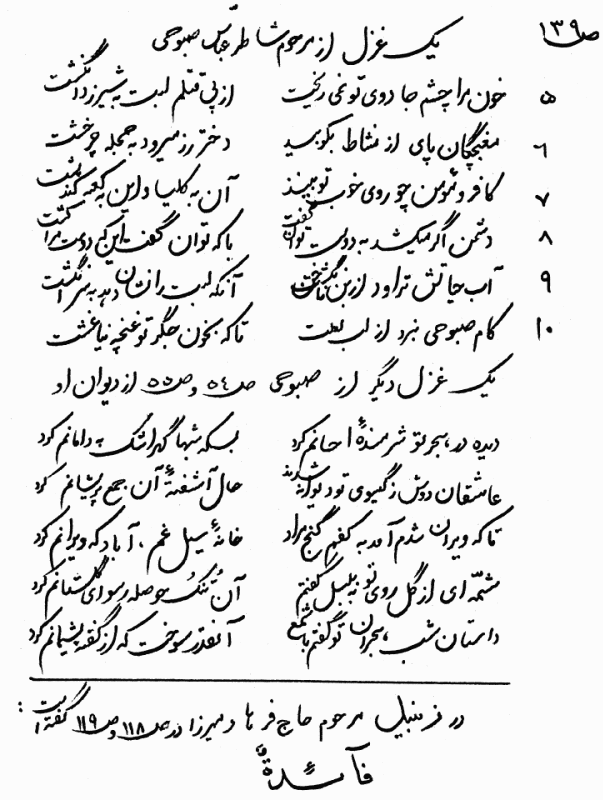 ص ۱۳۹
یک غزل از مرحوم شاطر عباس صبوحی
۵ خون مرا چشم جادوی تو نمی ریخت از پی قتلم لبت به شیر زد انگشت
۶ مغبچگان پای از نشاط بکوبید دختر رز میرود به حجله چرخشت
۷ کافر و مؤمن چو روی خوب تو بینند آن به کلیسا و این به کعبه کند پشت
۸ دشمن اگر میکشد به دوست توان گفت با که توان گفت این که دوست مرا کشت
۹ آب حیاتش تراود از بن ناخن آنکه لبت را نشان دهد به سر انگشت
۱۰ کام صبوحی نبرد از لب لعلت تا که بخون جگر تو غنچه نیاغشت
یک غزل دیگر از صبوحی ص ۵۴ و ص ۵۵ از دیوان او
دیده در هجر تو شرمندهٔ احسانم کرد بسکه شبها گهر اشک به دامانم کرد
عاشقان دوش ز گیسوی تو دیوانه شدند حال آشفتهٔ آن جمع پریشانم کرد
تا که ویران شدم آمد به کفم گنج مراد خانهٔ سیل غم، آباد که ویرانم کرد
شمّه ای از گل روی تو به بلبل گفتم آن تُنُک حوصله رسوای گلستانم کرد
داستان شب هجران تو گفتم با شمع آنقدر سوخت که از گفته پشیمانم کرد
در زنبیل مرحوم حاج فرهاد میرزا در ص ۱۱۸ و ص ۱۱۹ گفته است :
فآئدةٌ